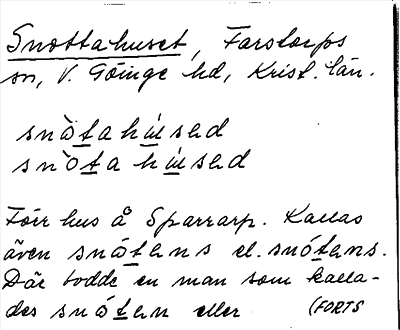 Snottahuset, Farstorps
sn, V. Göinge hd, Krist. län.
snòtahúsed
snòtahúsed
Förr hus å Sparrarp. Kallas
även snótens el. snótens.
Där bodde en man som kalla-
des snóten eller (FORTS